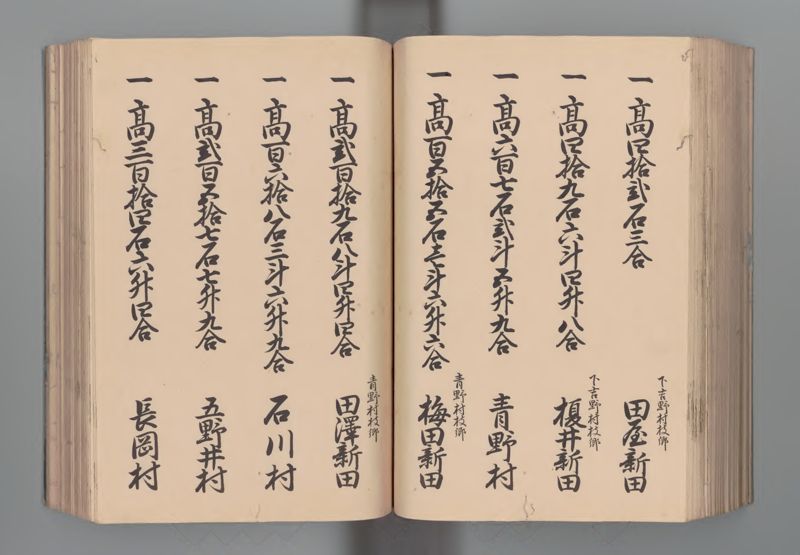 一 高四拾弐石三合
下吉野村枝郷
田屋新田
一 高四拾九石六斗四升八合
下吉野村枝郷
榎井新田
一 高六百七石弐斗五升九合
青野村
一 高百五拾五石壱斗六升六合
青野村枝郷
梅田新田
一 高弐百拾九石八斗四升四合
青野村枝郷
田澤新田
一 高百六拾八石三斗六升九合
石川村
一 高弐百五拾七石七升九合
五野井村
一 高三百拾四石六升四合
長岡村